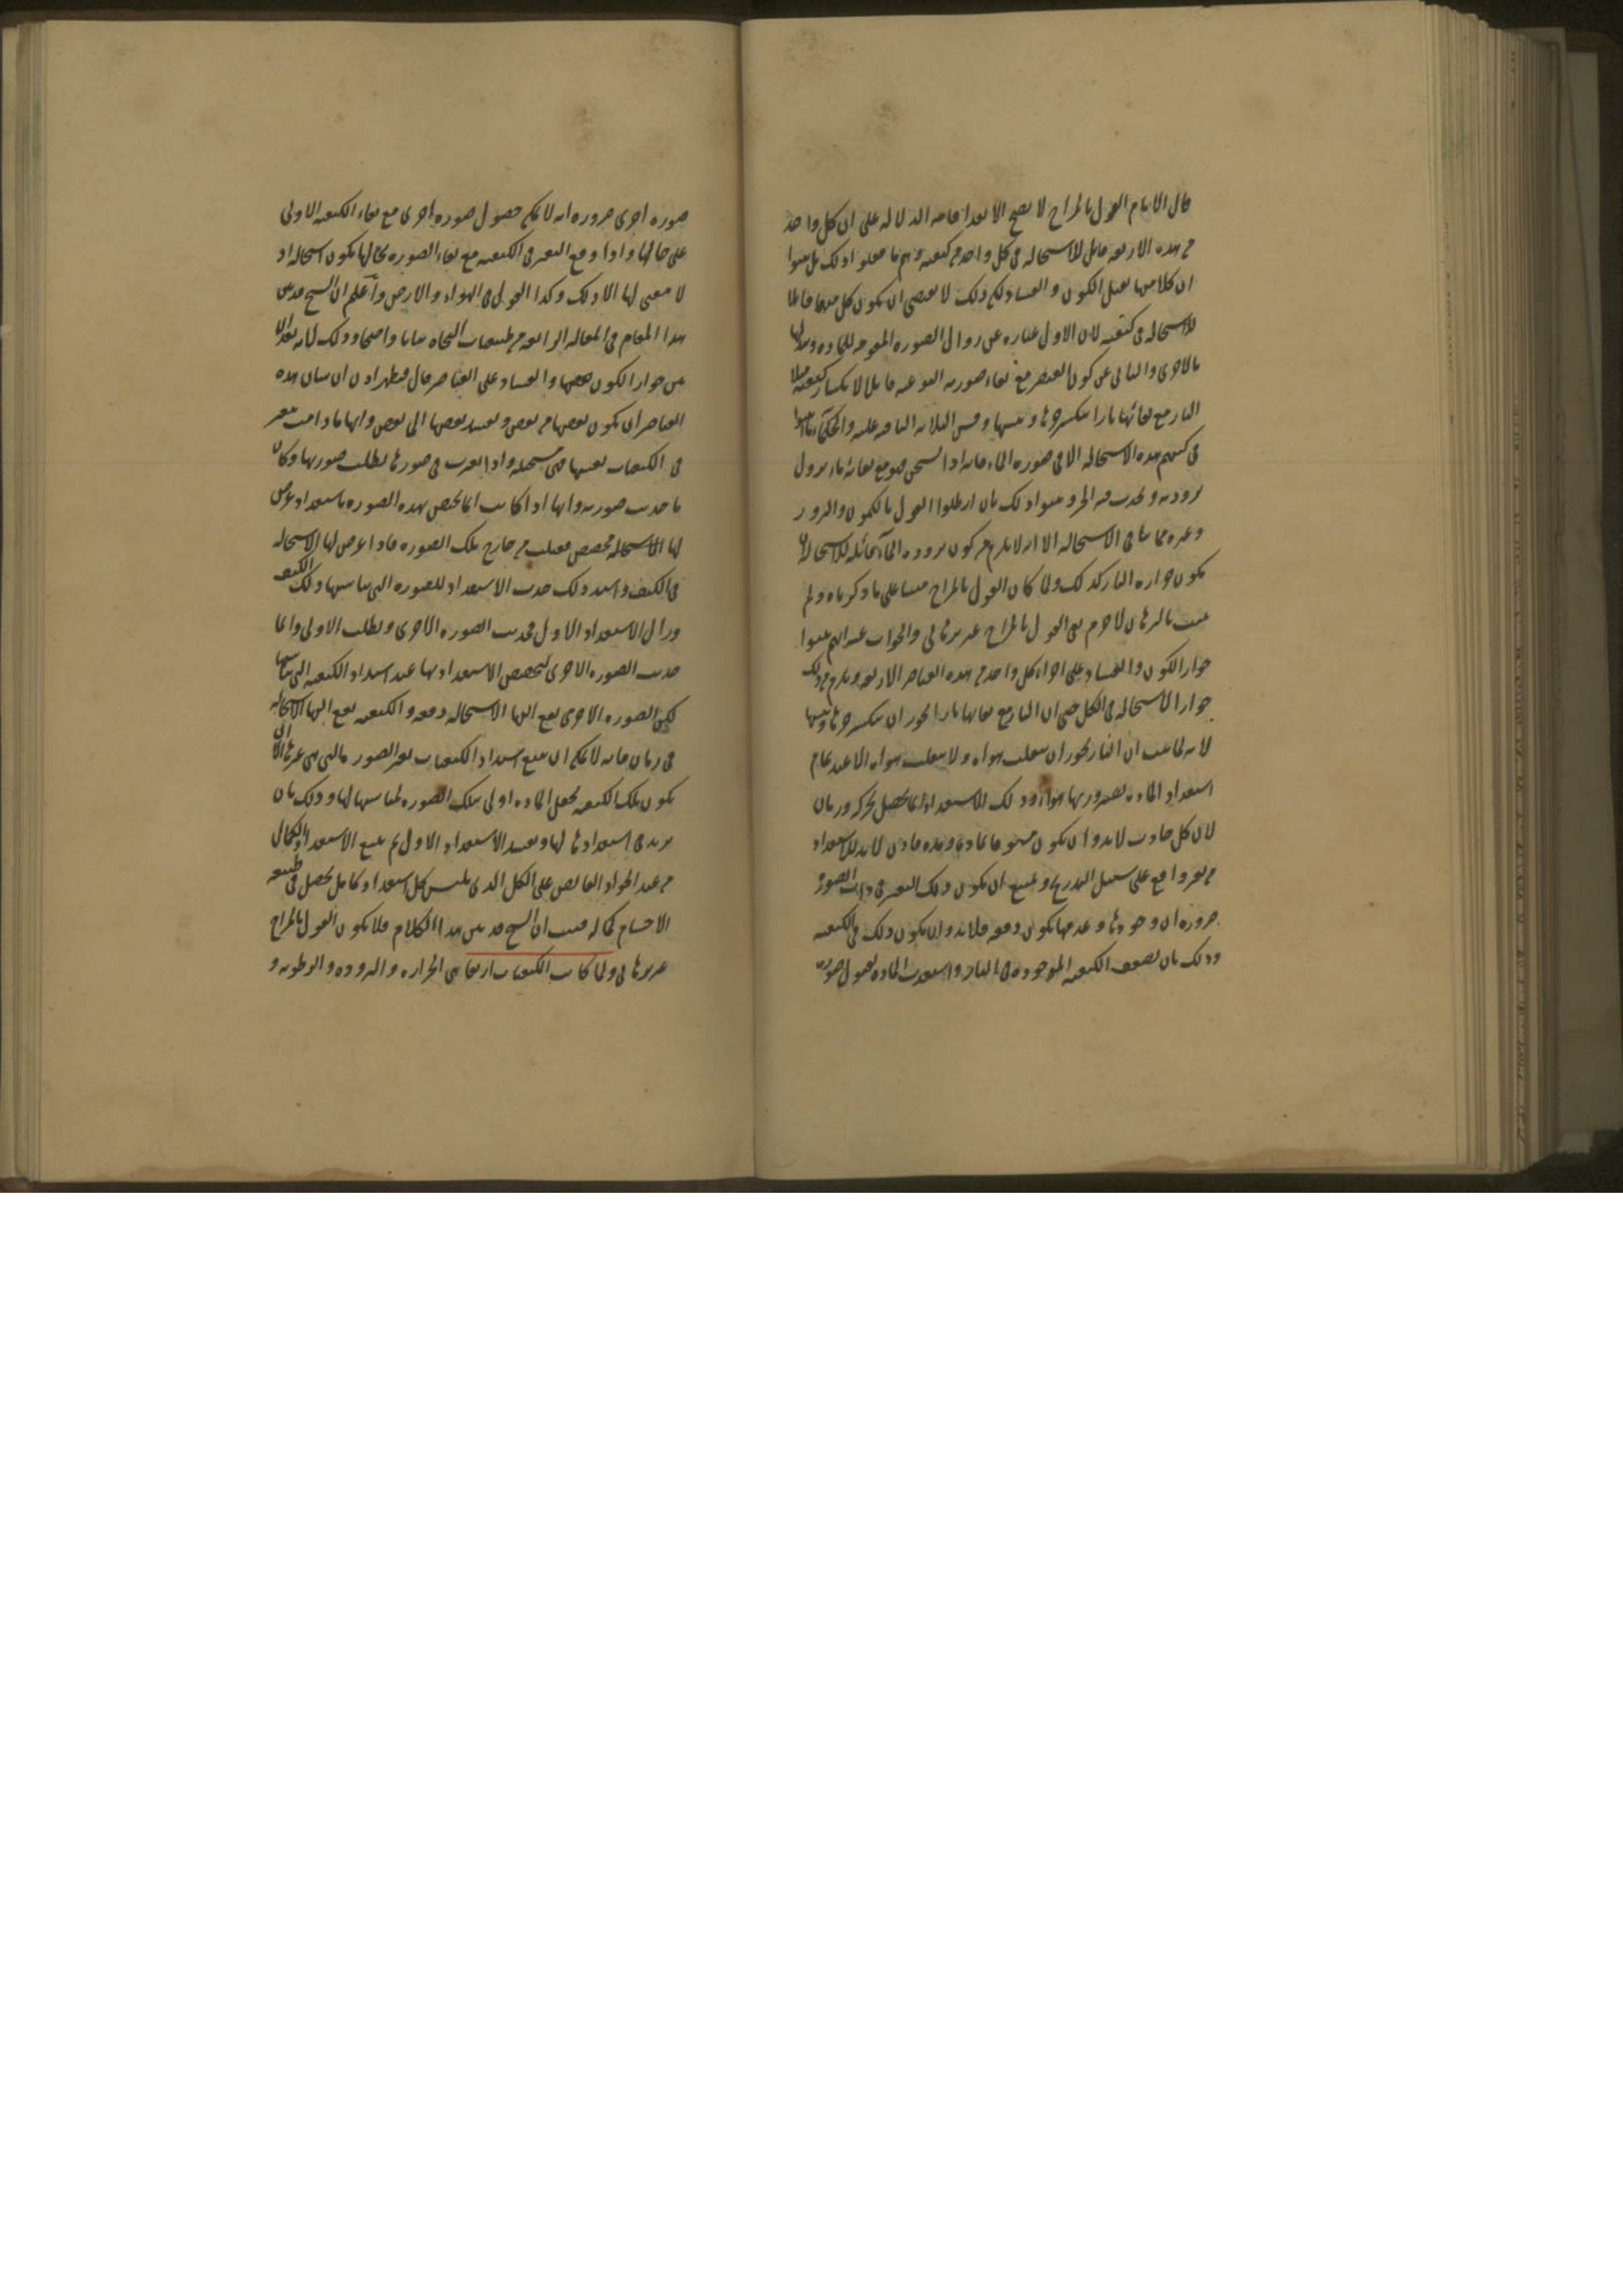 قال الامام القول بالمزاج لا يصح الا بعد اقامه الدلاله على ان كل واحد
من هذه الاربعه قابل للاستحاله فى كل واحد من كيفيته وهم ما فعلوا ذلك بل بينوا
ان كلا منها يقبل الكون و الفساد لكن ذلك لا يقتضى ان يكون كل منها قابلا
للاستحاله فى كيفيته لان الاول عباره عن زوال الصوره المقومه للماده وتبدلها
بالاخرى والثانى عن كون العنصر مع بقاء صورته النوعيه قابلا لانكسار كيفيته مثلا
النار مع بقائها نارا ينكسر حرها و يبسها وقس الثلاثه الباقيه عليه والحكماء ما بينوا
فى كتبهم هذه الاستحاله الا فى صوره الماء فانه اذا تسخن فهو مع بقائه ماء يزول
برودته و يحدث فيه الحر و بينوا ذلك بان ابطلوا القول بالكمون والبروز
وغيره مما ينافى الاستحاله الا انه لا يلزم من كون بروده الماء قابله للاستحاله ان
يكون حراره النار كذلك ولما كان القول بالمزاج مبنيا على ما ذكرناه ولم
يثبت بالبرهان لا جرم بقى القول بالمزاج غير برهانى والجواب عنه انهم بينوا
جواز الكون و الفساد على اجزاء كل واحد من هذه العناصر الاربعه ويلزم من ذلك
جواز الاستحاله فى الكل حتى ان النار مع بقائها نارا يجوز ان ينكسر حرها ويبسها
لانه لما ثبت ان النار يجوز ان ينقلب هواء ولا ينقلب هواء الا عند تمام
استعداد الماده لصيرورتها هواء و ذلك الاستعداد انما يحصل بحركه وزمان
لان كل حادث لابد و ان يكون مسبوقا بماده ومده فاذن لابد للاستعداد
من تغير واقع على سبيل التدريج و يمتنع ان يكون ذلك التغير فى ذات الصوره
ضروره ان وجودها و عدمها يكون دفعه فلابد وان يكون ذلك فى الكيفيه
وذلك بان يضعف الكيفيه الموجوده فى النار واستعدت الماده لقبول صوره
صوره اخرى ضروره انه لا يمكن حصول صوره اخرى مع بقاء الكيفيه الاولى
على حالها و اذا وقع التغير فى الكيفيه مع بقاء الصوره بحالها يكون استحاله اذ
لا معنى لها الا ذلك وكذا القول فى الهواء و الارض واعلم ان الشيخ قد بين
هذا المقام فى المقاله الرابعه من طبيعيات النجاه بيانا واضحا وذلك لانه بعد ان
بين جواز الكون والفساد على العناصر قال فيظهر اذن ان بيان هذه
العناصر ان يكون بعضها من بعض و يفسد بعضها الى بعض وانها ما دامت يتغير
فى الكيفيات نفسها فهى مستحيله واذا تغيرت فى صورها بطلت صورتها وكان
ما حدث صورته وانها اذا كانت انما يختص بهذه الصوره باستعداد عرض
لها الاستحاله مخصص فعلت من خارج تلك الصوره فاذا عرض لها الاستحاله
فى الكيف واشتد ذلك حدث الاستعداد للصوره التى يناسبها ذلك الكيف
وزال الاستعداد الاول فحدثت الصوره الاخرى و بطلت الاولى وانما
حدثت الصوره الاخرى لتخصص الاستعداد بها عند اشتداد الكيفيه التى يناسبها
لكن الصوره الاخرى يقع اليها الاستحاله دفعه و الكيفيه يقع اليها الاستحاله
فى زمان فانه لا يمكن ان يقع اشتداد الكيفيات بغير الصور التى هى غيرها الا ان
يكون تلك الكيفيه تجعل الماده اولى بتلك الصوره لمناسبتها لها و ذلك بان
يزيد فى استعدادها لها و يفسد الاستعداد الاول ثم يتبع الاستعداد الكمال
من عند الجواد الفائض على الكل الذى يلبس كل استعداد كامل يحصل فى طبيعه
الاجسام كماله فثبت ان الشيخ قد بين هذا الكلام فلا يكون القول بالمزاج
غير برهانى ولما كانت الكيفيات اربعا هى الحراره و البروده و الرطوبه و